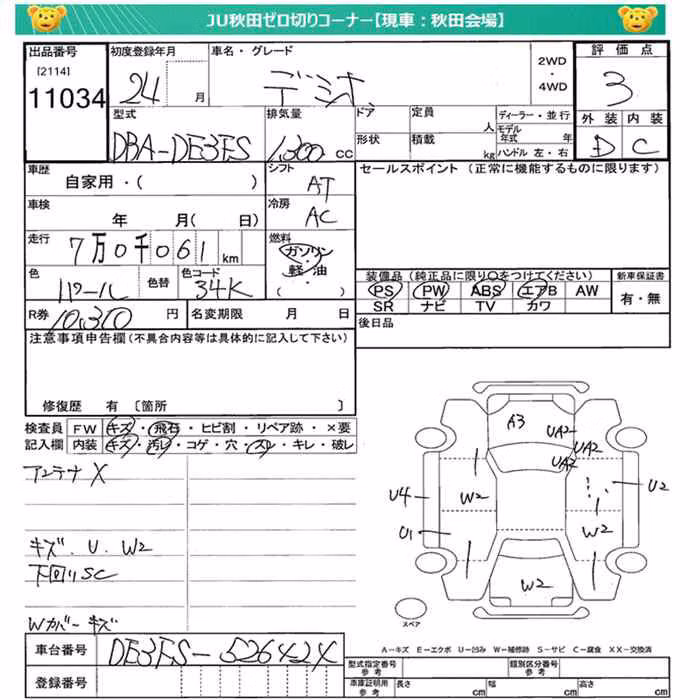 JU秋田ゼロ切りコーナー【現車：秋田会場】
出品番号 初度登録年月 車名・グレード 2WD ・ 4WD 評価点
[2114]
11034 24 月 デミオ 3
型式 排気量 ドア 定員 人 ディーラー・並行 外装 内装
DBA-DE3FS 1,300 CC 形状 積載 kg モデル年式 年 ハンドル 左・右 D C
車歴 シフト セールスポイント（正常に機能するものに限ります）
自家用・（ ） AT
車検 冷房
年 月（ 日） AC
走行 燃料
7万0千061km ガソリン・軽油
（ ）
色 色替 色コード 装備品（純正品に限り○をつけてください） 新車保証書
パール 34K PS PW ABS エアB AW 有・無
SR ナビ TV カワ
R券 10,310 円 名変期限 月 日 後日品
注意事項申告欄（不具合内容等は具体的に記入して下さい）
修復歴 有〔箇所 〕
検査員 FW キズ・飛石・ヒビ割・リペア跡・×要
記入欄 内装 キズ・汚レ・コゲ・穴・スレ・キレ・破レ
アンテナ X
キズ．U．W2
下回りSC
Wカバーキズ
A3 UA2
UA2
UA2
U4 W2 U2
U1 W2
W2
スペア
A－キズ E－エクボ U－凹み W－補修跡 S－サビ C－腐食 XX－交換済
車台番号 DE3FS-526424
登録番号
型式指定番号 参考 類別区分番号 参考
車庫証明用 参考 長さ cm 幅 cm 高さ cm